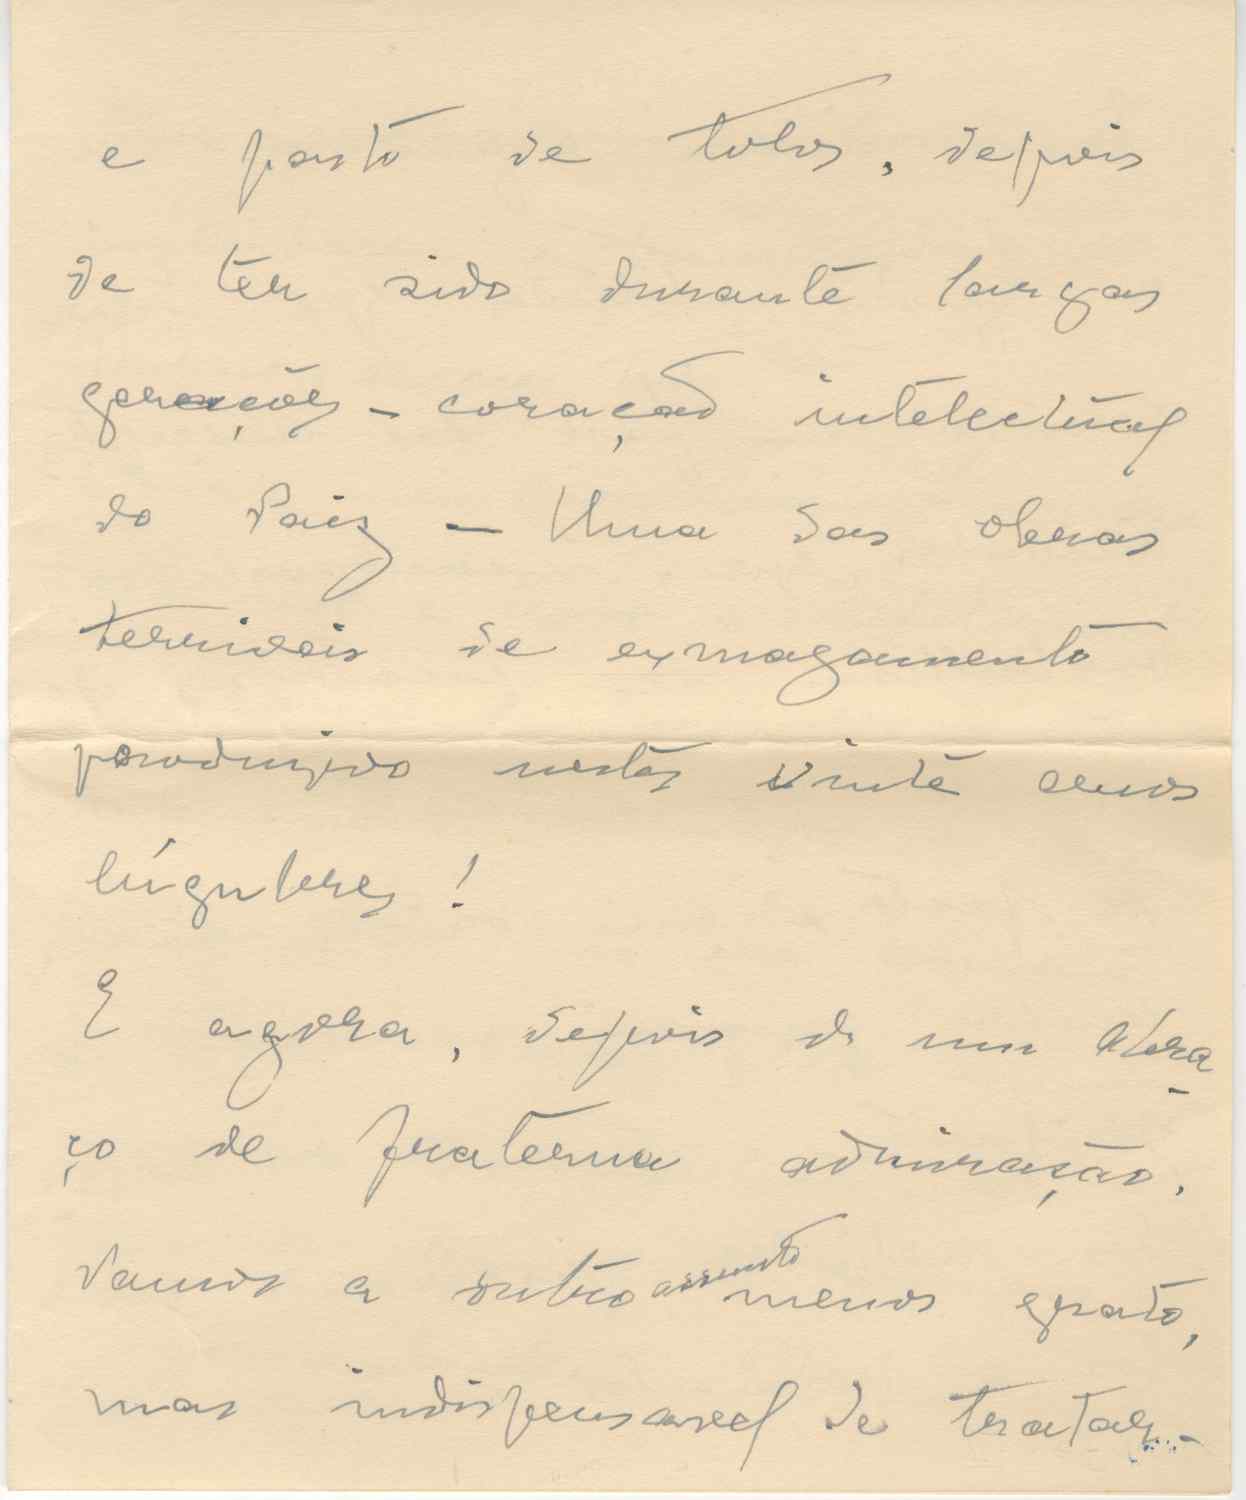 e pasto de tolos, depois
de ter sido durante largas
gerações - coração intelectual
do Paiz - Uma das obras
terriveis de esmagamento
produzido nestes vinte anos
lúgubres!
E agora, depois de um abra-
ço de fraterna admiração,
vamos a outro assunto menos grato,
mas indispensavel de tratar -